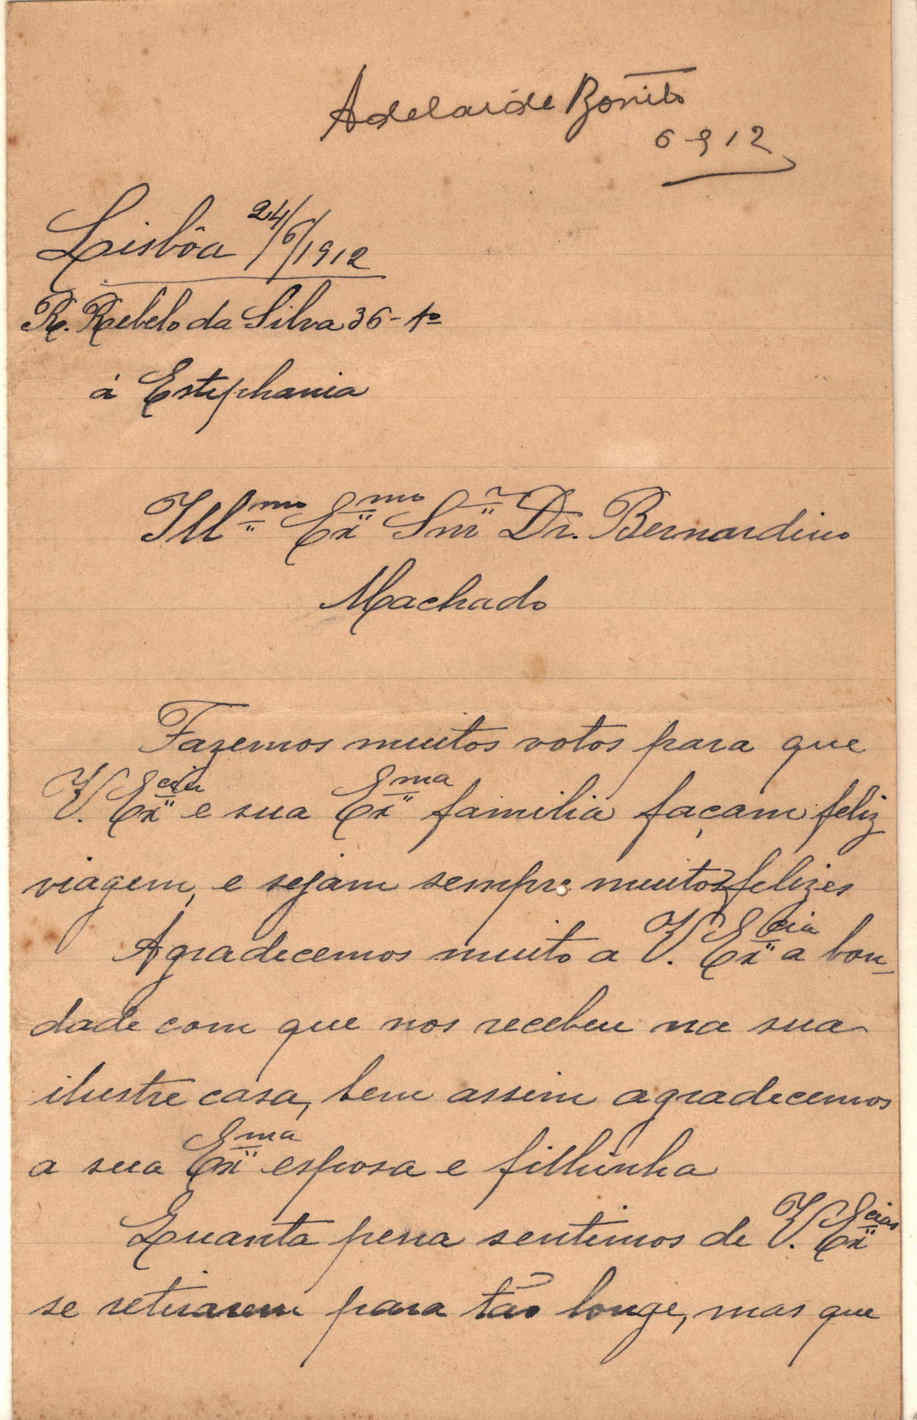 Adelaide Bonito
6-912
Lisbôa 24/6/1912
R. Rebelo da Silva 36-1º
á Estephania
Illmo Exmo Snr Dr. Bernardino
Machado
Fazemos muitos votos para que
V. Excia e sua Exma familia façam feliz
viagem, e sejam sempre muitos felizes
Agradecemos muito a V. Excia a bon-
dade com que nos recebeu na sua
ilustre casa, bem assim agradecemos
a sua Exma esposa e filhinha
Quanta pena sentimos de V. Excias
se retirarem para tão longe, mas que